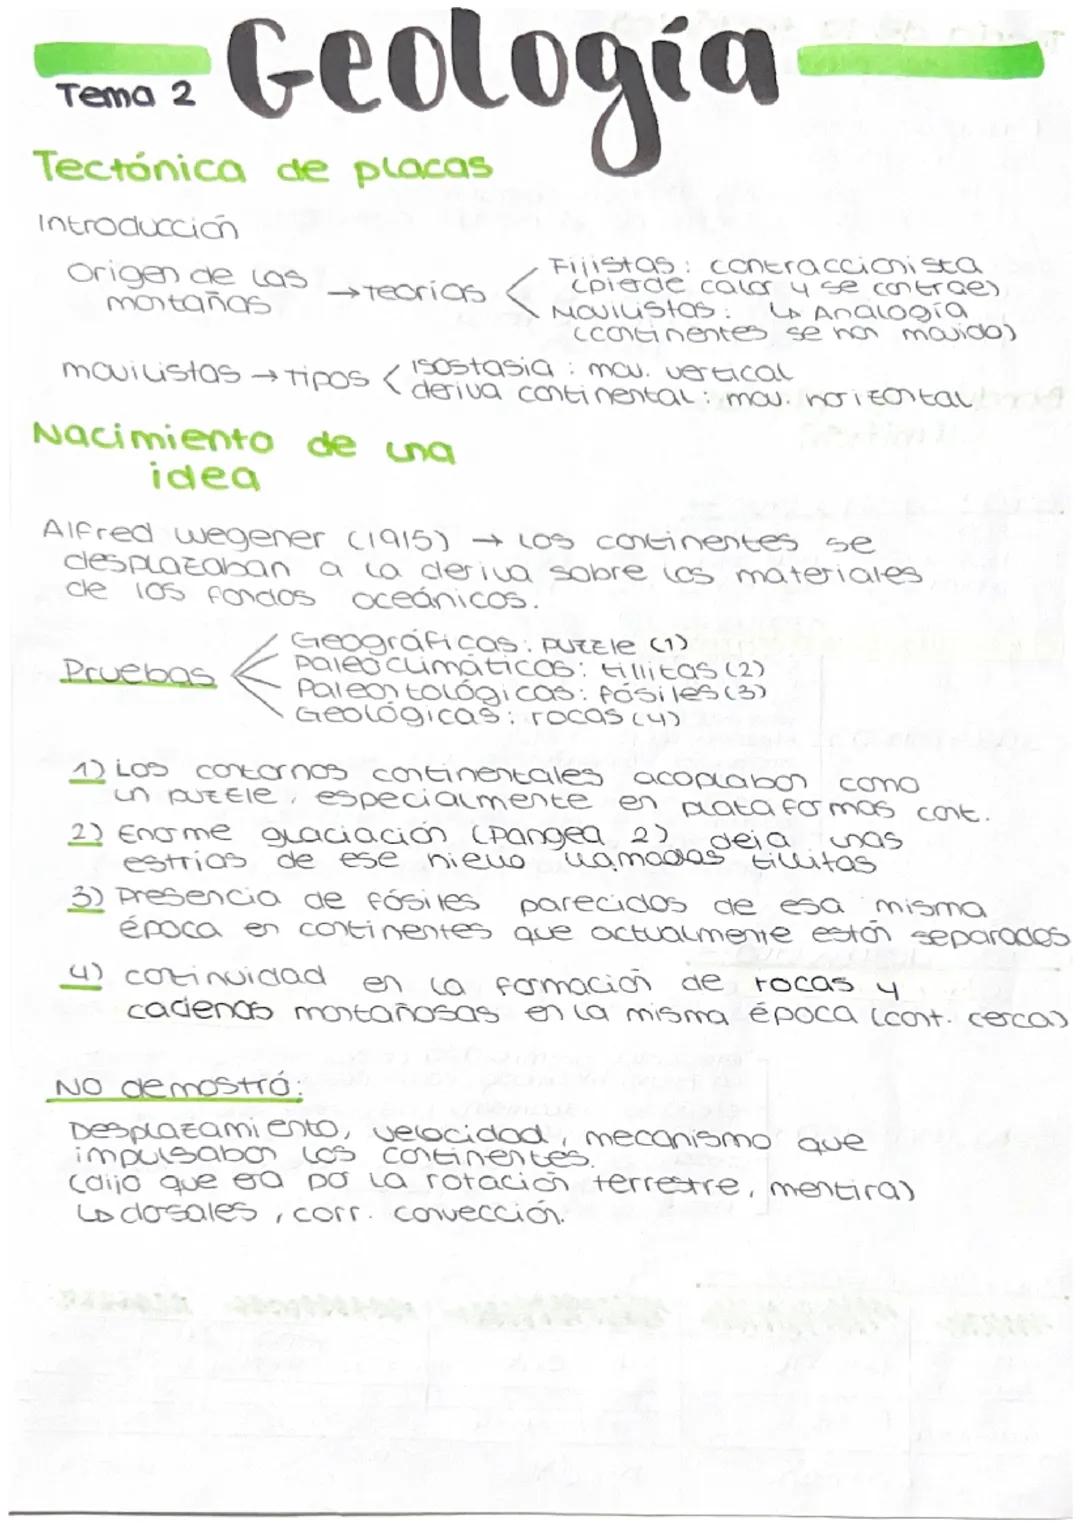 Geología
Tema 2
Tectónica de placas
Introducción
Origen de las montañas → teorías
Fijistas: contraccionista
(pierde calor y se contrae)
Movilistas: ↳ Analogía
(continentes se han movido)
movilistas → Tipos
isostasia: mov. vertical
deriva continental: mov. horizontal
Nacimiento de una
idea
Alfred Wegener (1915) → Los continentes se
desplazaban a la deriva sobre los materiales
de los fondos oceánicos.
Pruebas
Geográficas: puzzle (1)
Paleoclimáticas: tillitas (2)
Paleontológicas: fósiles (3)
Geológicas: rocas (4)
1) Los contornos continentales acoplaban como
un puzzle, especialmente en plataformas cont.
2) Enorme glaciación (Pangea 2) deja unas
estrías de ese hielo llamadas tillitas
3) Presencia de fósiles parecidos de esa misma
época en continentes que actualmente están separados
4) continuidad en la formación de rocas y
cadenas montañosas en la misma época (cont. cerca)
No demostró:
Desplazamiento, velocidad, mecanismo que
impulsaban los continentes.
(dijo que era por la rotación terrestre, mentira)
↳ dorsales, corr. convección.